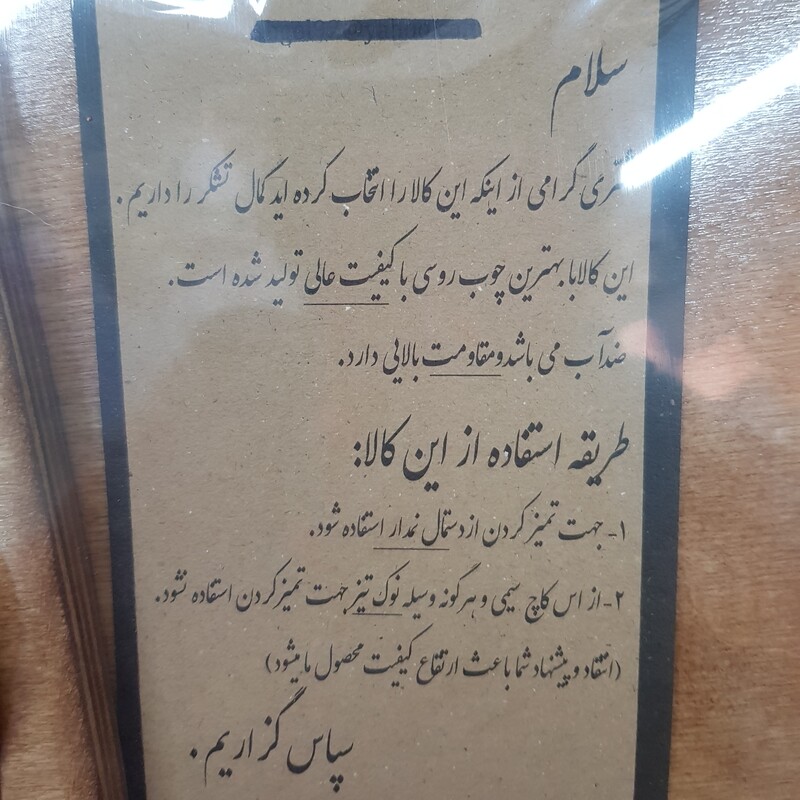 سلام
مشتری گرامی از اینکه این کالا را انتخاب کرده اید کمال تشکر را داریم.
این کالا با بهترین چوب روسی با کیفیت عالی تولید شده است.
ضدآب می باشد و مقاومت بالایی دارد.
طریقه استفاده از این کالا:
۱- جهت تمیز کردن از دستمال نمدار استفاده شود.
۲- از اس کاچ سیمی و هرگونه وسیله نوک تیز جهت تمیز کردن استفاده نشود.
(انتقاد و پیشنهاد شما باعث ارتقاع کیفیت محصول ما میشود)
سپاس گزاریم.